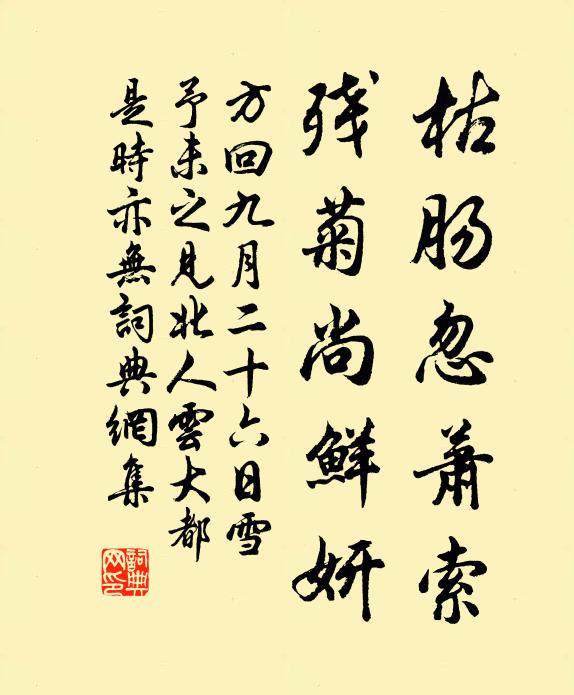 枯肠忽萧索
残菊尚鲜妍
方回九月二十六日雪
予未之见北人雲大都
是時亦無詞典網集
詞典網印